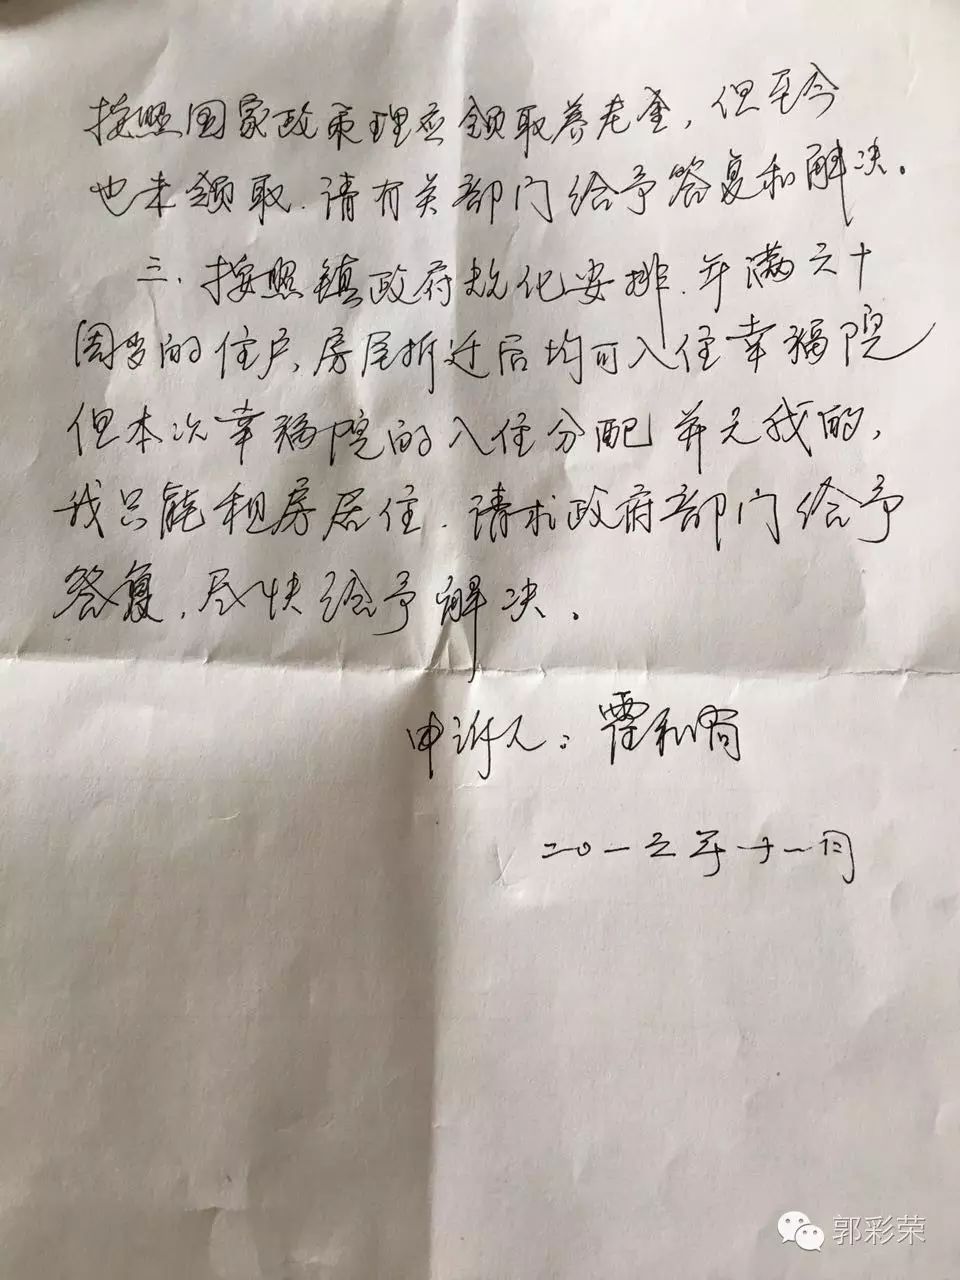 按照国家政策理应领取养老金，但至今
也未领取.请有关部门给予答复和解决。
三.按照镇政府规化安排.年满六十
周岁的住户,房屋折迁后均可入住幸福院
但本次幸福院的入住分配并无我的,
我只能租房居住.请求政府部门给予
答复,尽快给予解决.
申诉人:霍和
二0一六年十一月
郭彩荣